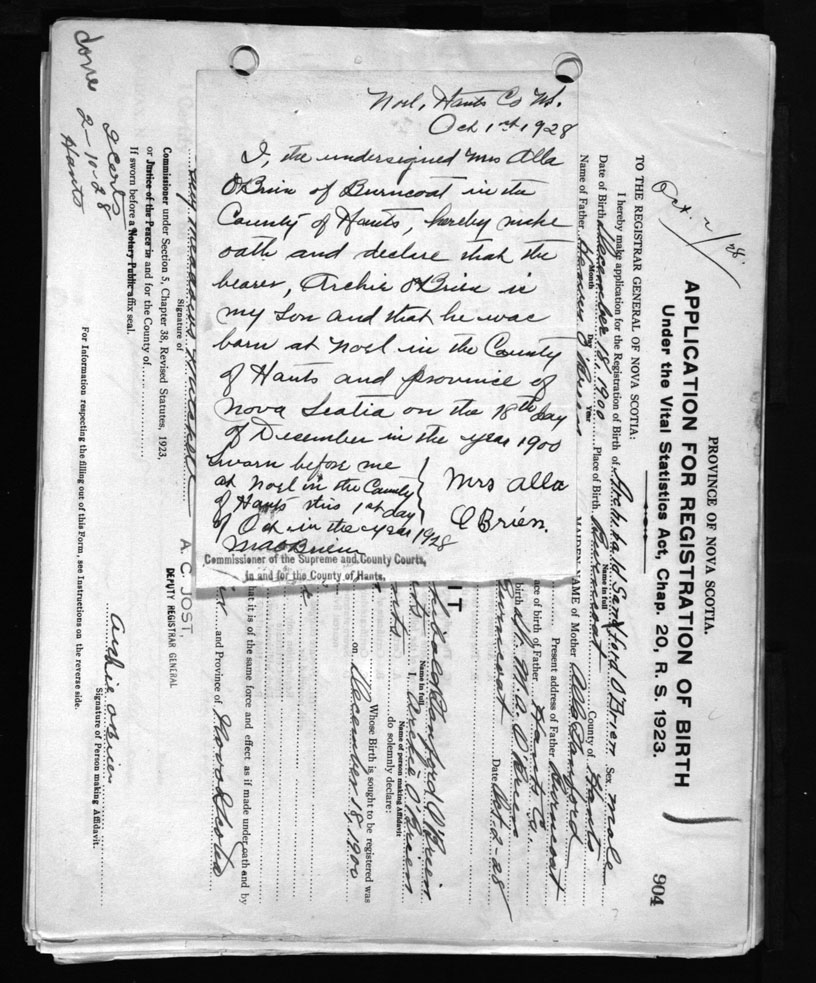 Noel, Hants Co NS.
Oct 1st, 1928
I, the undersigned Mrs Alla
O'Brien of Burncoat in the
County of Hants, hereby make
oath and declare that the
bearer, Archie O'Brien is
my Son and that he was
born at Noel in the County
of Hants and province of
Nova Scotia on the 18th day
of December in the year 1900
Sworn before me
at Noel in the County
of Hants this 1st day
of Oct in the year 1928
Mrs Alla
O'Brien.
Commissioner of the Supreme and County Courts,
in and for the County of Hants.
PROVINCE OF NOVA SCOTIA.
APPLICATION FOR REGISTRATION OF BIRTH
Under the Vital Statistics Act, Chap. 20, R. S. 1923.
904
Oct. 2/28.
TO THE REGISTRAR GENERAL OF NOVA SCOTIA:
I hereby make application for the Registration of Birth of Archibald Sandford O'Brien Sex male
Name in full
Date of Birth December 18. 1900 Place of Birth Burncoat County of Hants
Month Day Year
Name of Father O'Brien MAIDEN NAME of Mother Alla Sanford
Present address of Father Burncoat
ace of birth of Father Hants Co.
birth Dr. M. A. O'Brien
Burncoat Date Oct. 2-28
IT
Sanford O'Brien
Name in full
I, Archie O'Brien
Name of person making Affidavit
do solemnly declare:
Whose Birth is sought to be registered was
on December 18, 1900
hat it is of the same force and effect as if made under oath and by
and Province of Nova Scotia
A. C. JOST,
DEPUTY REGISTRAR GENERAL
Signature of
Commissioner under Section 5, Chapter 38, Revised Statutes, 1923,
or Justice of the Peace in and for the County of
If sworn before a Notary Public affix seal.
Archie O'Brien
Signature of Person making Affidavit.
For Information respecting the filling out of this Form, see Instructions on the reverse side.
done
2 certs
2-10-28
Hants